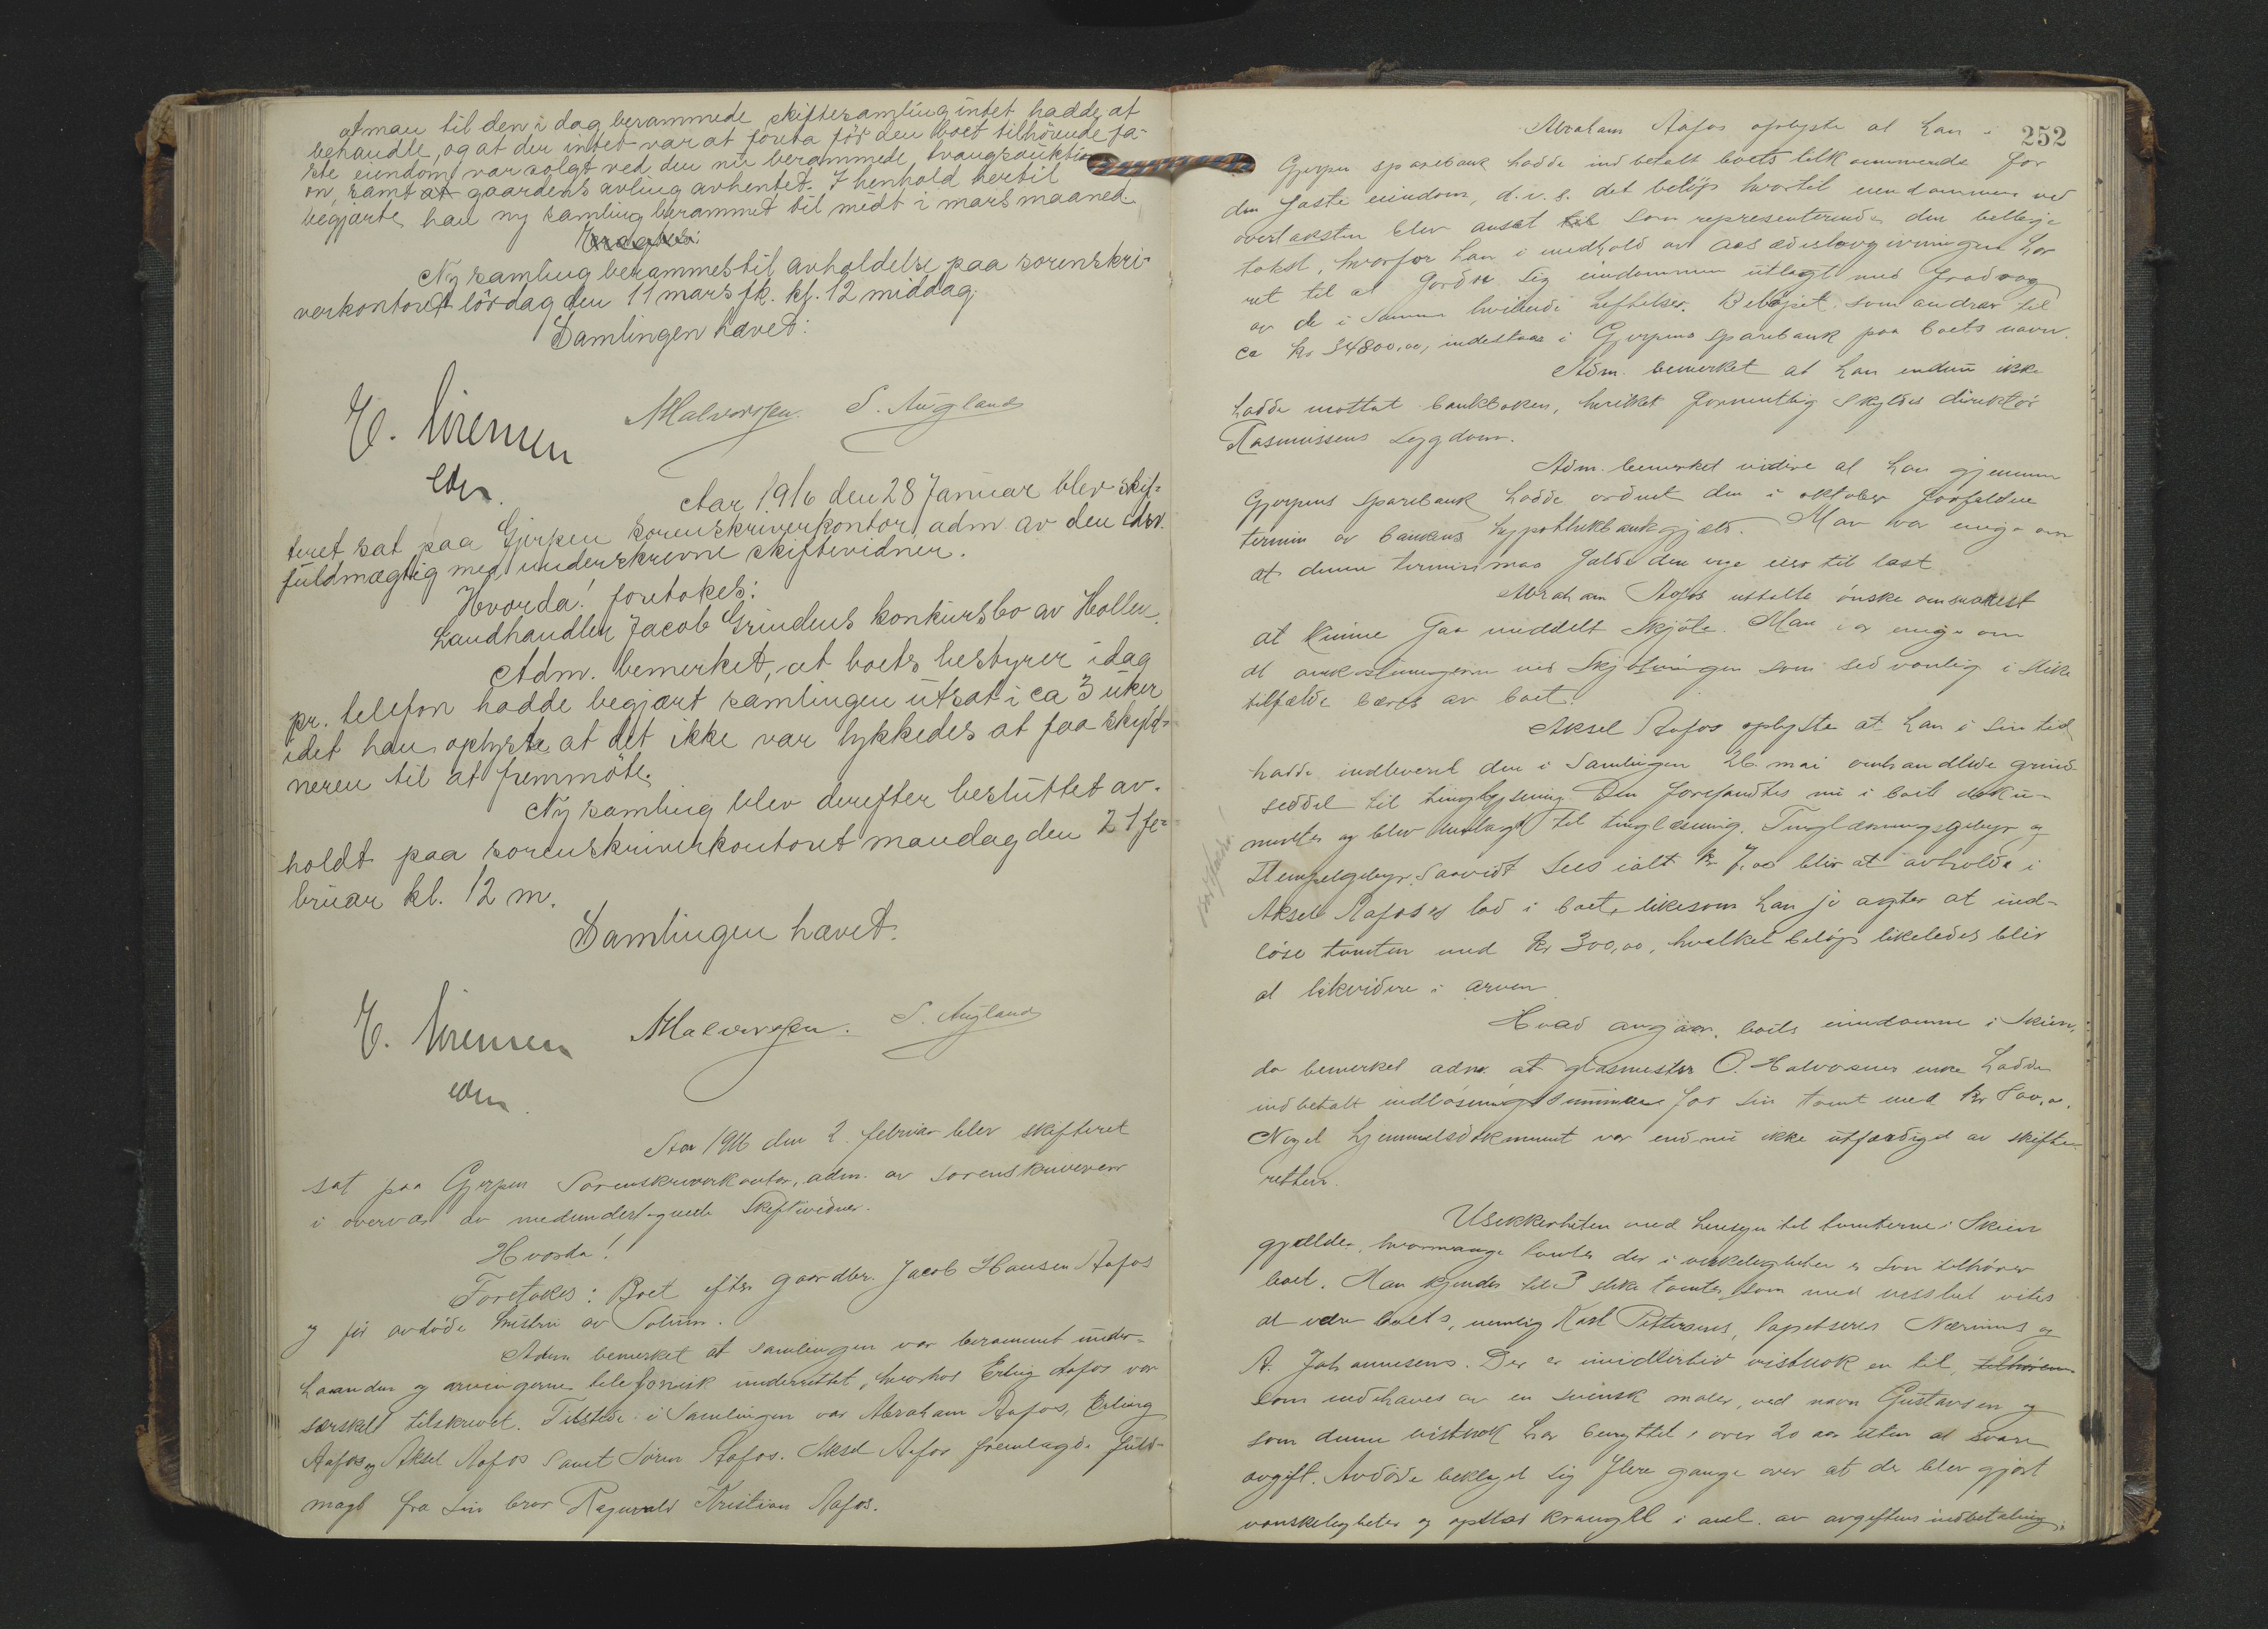 at man til den i dag berammede skiftesamling intet hadde at
behandle, og at der intet var at foreta før den boet tilhørende fa-
ste eiendom var solgt ved den nu berammede tvangsauktio
on, samt at gaardens avling avhentet. I henhold hertil
begjærte han ny samling berammet til midt i mars maaned.
Ny samling berammes til avholdelse paa sorenskri-
verkontoret lördag den 11 mars fk. kl. 12 middag.
Samlingen hævet:
MHalvorssen. S. Augland
edsv.
Aar 1916 den 28 Januar blev skif-
teret sat paa Gjerpen sorenskriverkontor, adm av den edsv.
fuldmægtig med underskrevne skiftevidner.
Hvorda! foretokes:
Landhandler Jacob Grindens konkursbo av Hollen.
Adm. bemerket, at boets bestyrer idag
pr. telefon hadde begjært samlingen utsat i ca 3 uker
idet han oplyste at det ikke var lykkedes at faa skyld-
neren til at fremmöte.
Ny samling blev derefter besluttet av-
holdt paa sorenskriverkontoret mandag den 21 fe-
bruar kl. 12 m.
Samlingen hævet.
MHalvorssen. S. Augland
edsv.
Aar 1916 den 2. februar blev skifteret
sat paa Gjerpen Sorenskriverkontor, adm. av sorenskriveren
i overvær av medundertegnede Skiftevidner.
Hvorda!
Foretokes: Boet efter gaardbr. Jacob Hansen Aafos
og før avdöde hustru av Solum.
Adm bemerket at samlingen var berammet under-
haanden og arvingerne telefonisk underrettet, hvorhos Erling Aafos var
særskilt tilskrevet. Tilstede i Samlingen var Abraham Aafos, Erling
Aafos og Aksel Aafos samt Sören Aafos. Aksel Aafos fremlagde fuld-
magt fra sin bror Ragnvald Kristian Aafos.
252
Abraham Aafos oplyste at han i
Gjerpen sparebank hadde indbetalt boets tilkommende for
den faste eiendom, d.v.s. det beløp hvortil eiendommen ved
overtaksten blev ansat til som representerende den billige
takst, hvorfor han i medhold av aasædeslovgivningen har
ret til at fordre sig eiendommen utlagt med fradrag
av de i samme hvilende heftelser. Beløpet som andrar til
ca kr 34800,00, indestaar i Gjerpens sparebank paa boets navn.
Adm. bemerket at han endnu ikke
hadde mottat bankboken, hvilket formentlig skyldes direktör
Rasmussens sygdom.
Adm. bemerket videre at han gjennem
Gjerpens sparebank hadde ordnet den i oktober forfaldne
termin av bankens hypothekbankgjæld. Man var enige om
at denne termin maa falde den nye eier til last.
Abraham Aafos uttalte önske om snarest
at kunne faa meddelt skjöte. Man var enige om
at omkostningerne ved Skjötningen som sedvanlig i slike
tilfælde bæres av boet.
Aksel Aafos oplyste at han i sin tid
hadde indleveret den i Samlingen 26. mai omhandlede grund-
seddel til tinglysning. Den forefandtes nu i boets doku-
menter og blev til tinglæsning. Tinglæsningsgebyr og
Stempelgebyr, saavidt sees ialt kr 7,00 blir at avholde i
Aksel Aafoses lod i boet, likesom han jo agter at ind-
löse tomten med kr 300,00, hvilket beløp likeledes blir
at likvidere i arven.
Hvad angaar boets eiendomme i Skien,
da bemerket adm. at glasmester O. Halvorsens enke hadde
indbetalt indlösningssummen for sin tomt med kr
Noget hjemmelsdokument var endnu ikke utfærdiget av skifte-
retten.
Usikkerheten med hensyn til tomterne i Skien
gjælder, hvormange tomter der i virkeligheten er som tilhörer
boet. Man kjender til 3 slike tomter som med visshet vites
at være boets, nemlig Karl Pettersens, tapetserer Nærums og
A. Johannesens. Der er imidlertid vistnok en til, tilhören
som indehaves av en svensk maler, ved navn Gustavsen og
som denne vistnok har benyttet i over 20 aar uten at svare
avgift. Avdöde beklaget sig flere gange over at der blev gjort
vanskeligheter og opstod krangel i anl. av avgiftens indbetaling.